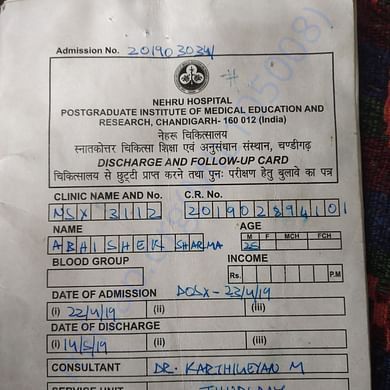 Admission No. 2019030341
NEHRU HOSPITAL
POSTGRADUATE INSTITUTE OF MEDICAL EDUCATION AND
RESEARCH, CHANDIGARH- 160 012 (India)
नेहरू चिकित्सालय
स्नातकोत्तर चिकित्सा शिक्षा एवं अनुसंधान संस्थान, चण्डीगढ़
DISCHARGE AND FOLLOW-UP CARD
चिकित्सालय से छुट्टी प्राप्त करने तथा पुनः परीक्षण हेतु बुलावे का पत्र
CLINIC NAME AND No. C.R. No.
NSX 3112 201902894101
NAME AGE
ABHISHEK SHARMA M F MCH FCH
25
BLOOD GROUP INCOME
Rs. P.M
DATE OF ADMISSION DOSX - 23/4/19
(i) 22/4/19 (ii) (iii)
DATE OF DISCHARGE
(i) 14/5/19 (ii) (iii)
CONSULTANT DR. KARTHIKEYAN M